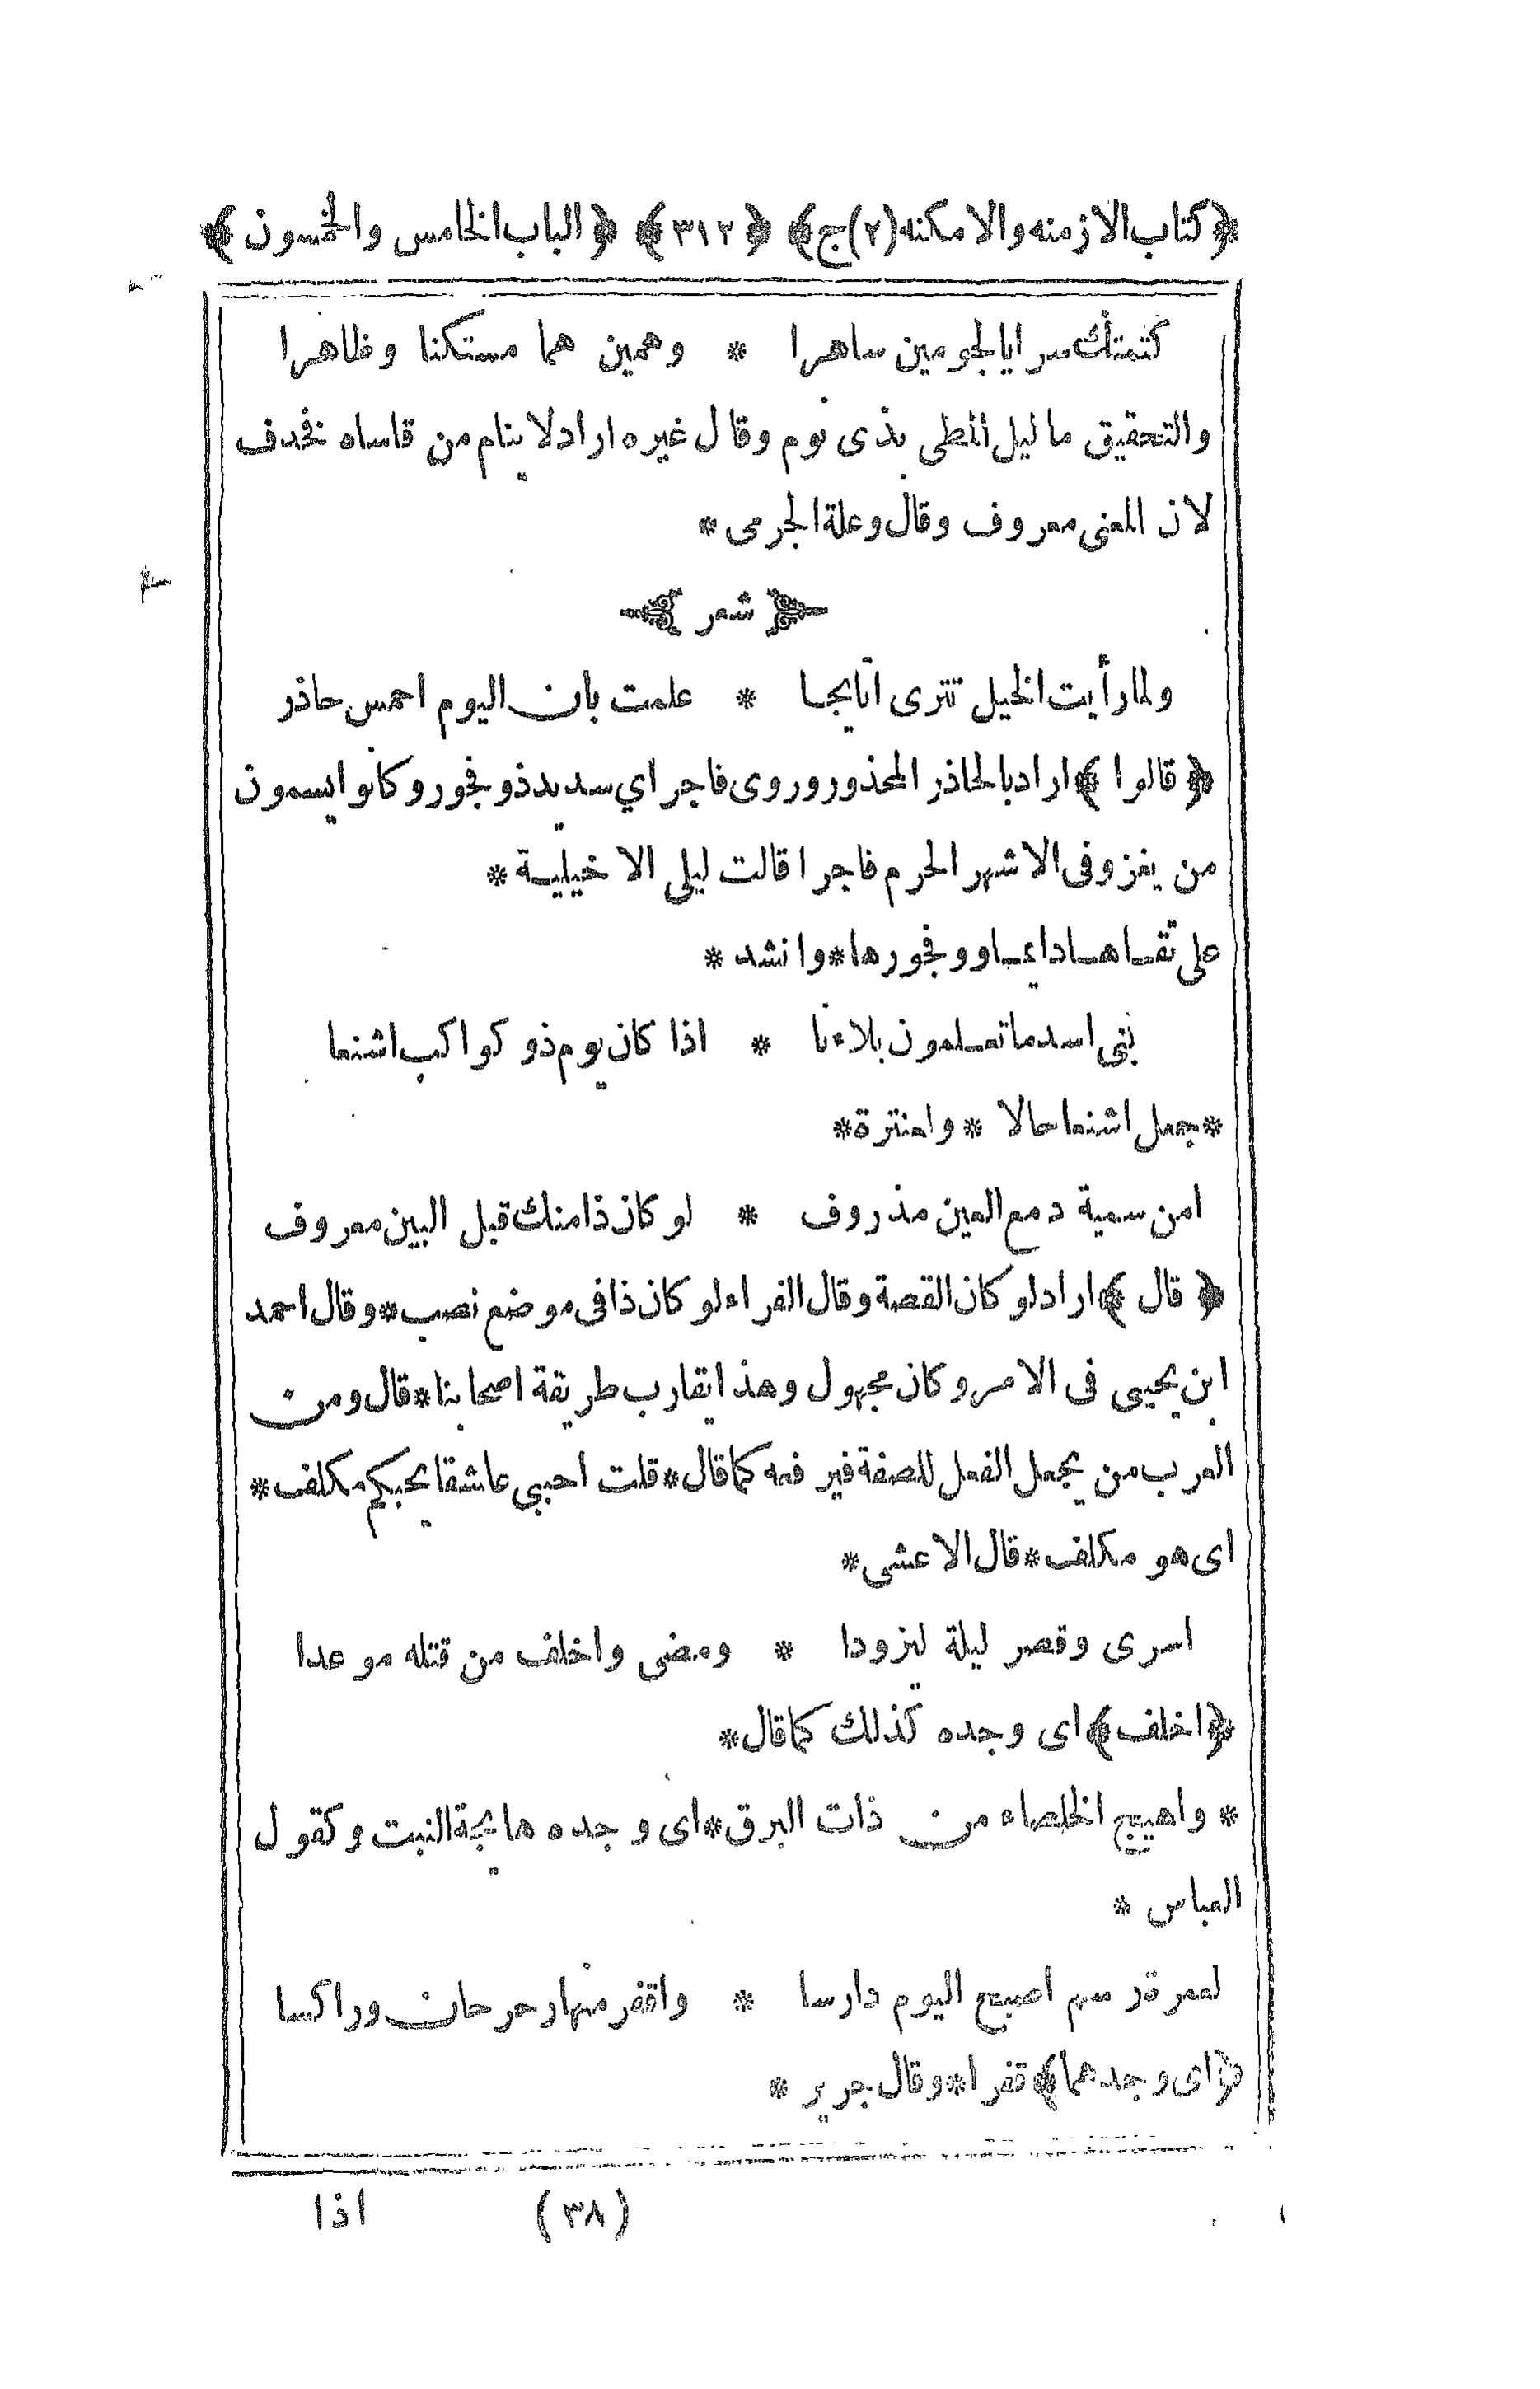 ﴿كتاب الازمنه والامكنه(٢)ج﴾ ﴿٣١٢﴾ ﴿الباب الخامس والخمسون﴾
كتمتك سرا يالجومين ساهرا * وهمين هما مستكنا وظاهرا
والتحقيق ما ليل المطى بذى نوم وقال غيره اراد لا ينام من قاساه فحذف
لان المعنى معروف وقال وعلة الجرمى *
شعر
ولما رأيت الخيل تترى اثايجا * علمت بان اليوم احمس حاذر
﴿قالوا﴾ اراد بالحاذر المحذور وروى فاجر اي سديد ذو فجور وكانوا يسمون
من يغزو فى الاشهر الحرم فاجرا قالت ليلى الاخيلية *
على تقاها وفجورها * وانشد *
بنى اسد ما تعلمون بلاءنا * اذا كان يوم ذو كواكب اشنعا
* جعل اشنعا حالا * ولعنترة *
امن سمية دمع العين مذروف * لو كان ذا منك قبل البين معروف
﴿قال﴾ اراد لو كان القصة وقال الفراء لو كان ذا فى موضع نصب * وقال احمد
ابن يحيى فى الامر وكان مجهول وهذا يقارب طريقة اصحابنا * قال ومن
العرب من يجعل الفعل للصفة فيرفعه كما قال * قلت احبي عاشقا بحبكم مكلف *
اى هو مكلف * قال الاعشى *
اسرى وقصر ليلة ليزودا * ومضى واخلف من قتله موعدا
﴿اخلف﴾ اى وجده كذلك كما قال *
* واهيج الخلصاء من ذات البرق * اى وجده هايجة النبت وكقول
العباس *
لعمرة رسم اصبح اليوم دارسا * واقفر منها رحرحان وراكسا
﴿اى وجدهما﴾ قفرا * وقال جرير *
(٣٨) اذا